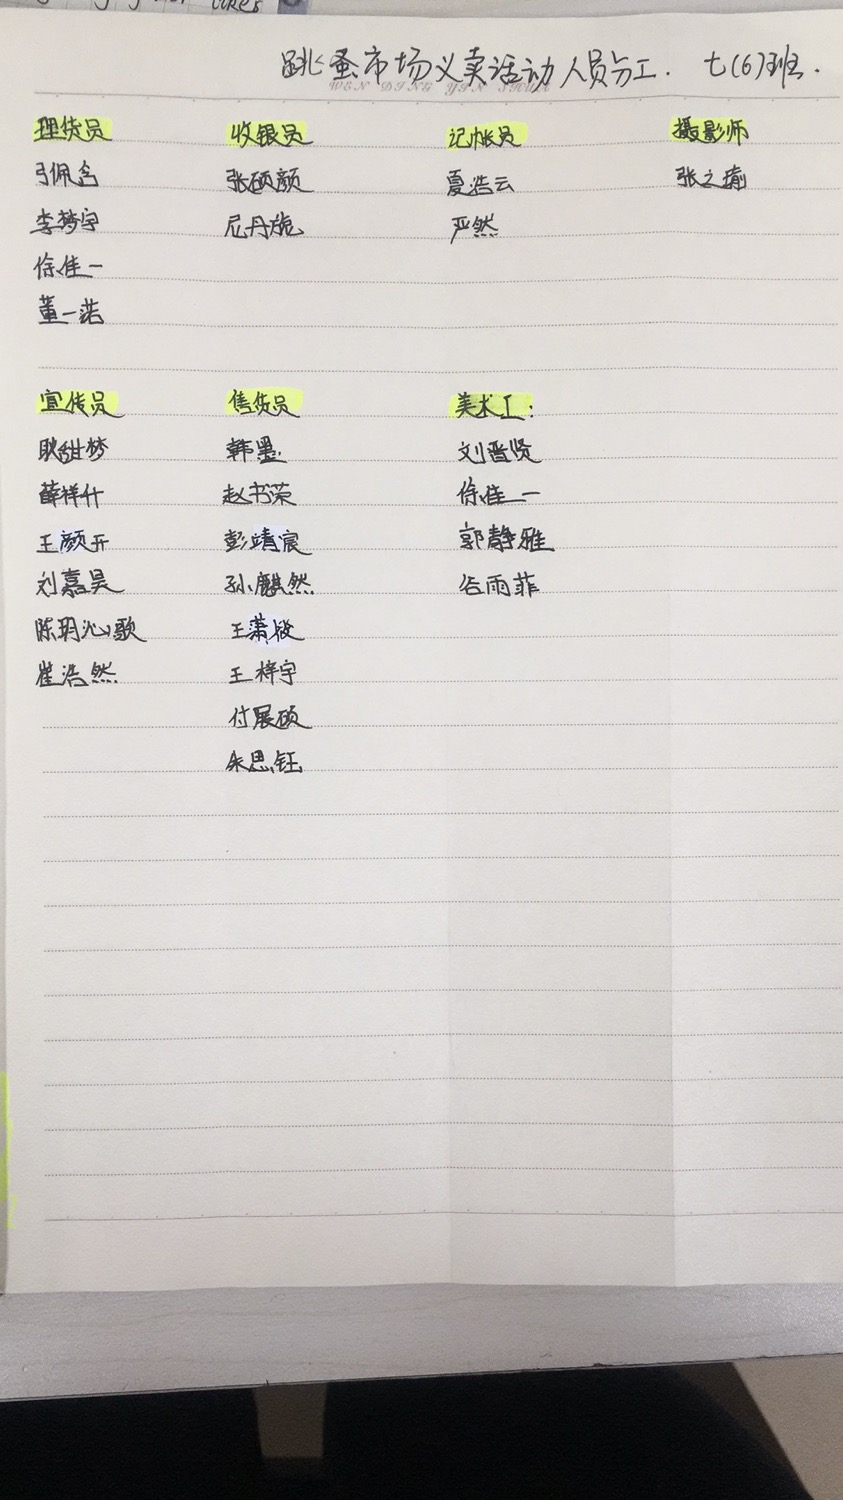 跳蚤市场义卖活动人员分工. 七(6)班.
WEN DING YIN SHUA
理货员 收银员 记帐员 摄影师
弓佩含 张硕颜 夏浩云 张之瑜
李梦宇 尼丹旎 严然
徐佳一
董一诺
宣传员 售货员 美术工:
耿甜梦 韩墨 刘晋贤
薛祥什 赵书荣 徐佳一
王颜开 彭靖宸 郭静雅
刘嘉昊 孙麒然 谷雨菲
陈玥沁歌 王萧
崔浩然 王梓宇
付展硕
朱思钰